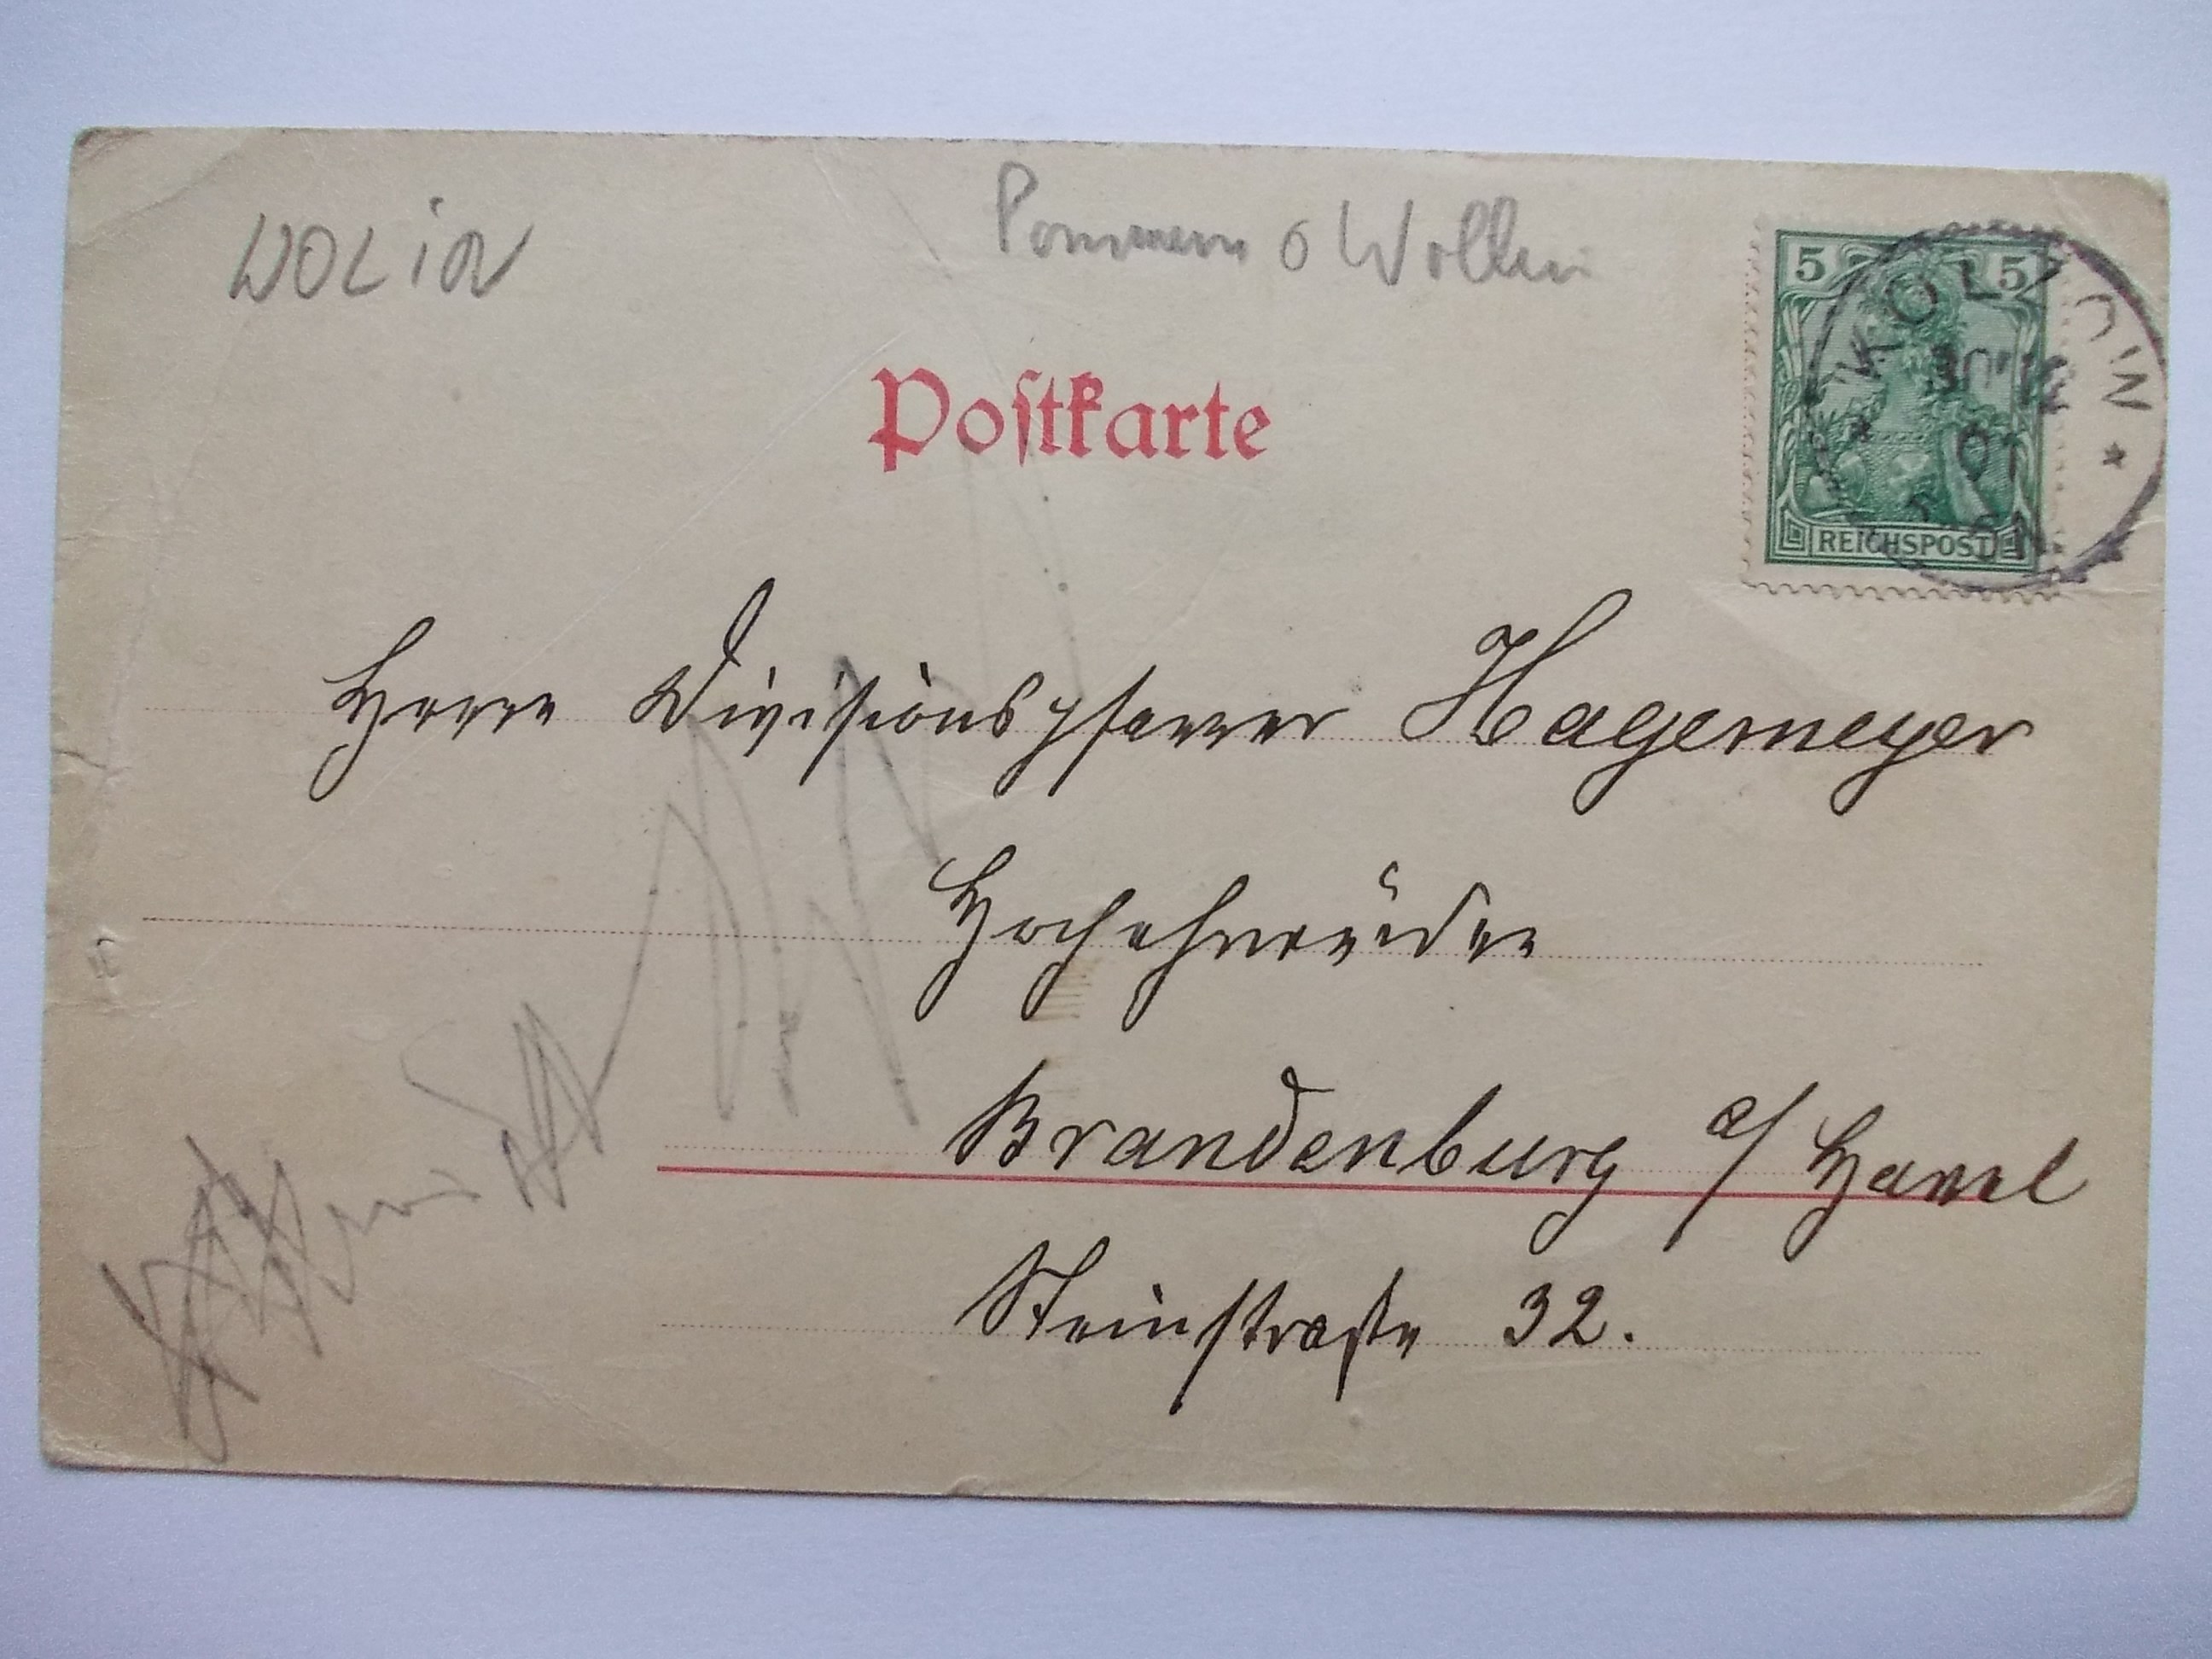 WOLiN
Pommern o Wollin
5 5
REICHSPOST
01
Postkarte
Herrn Divisionspfarrer Hagemeyer
Hochehrwürden
Brandenburg a/ Havel
Steinstraße 32.